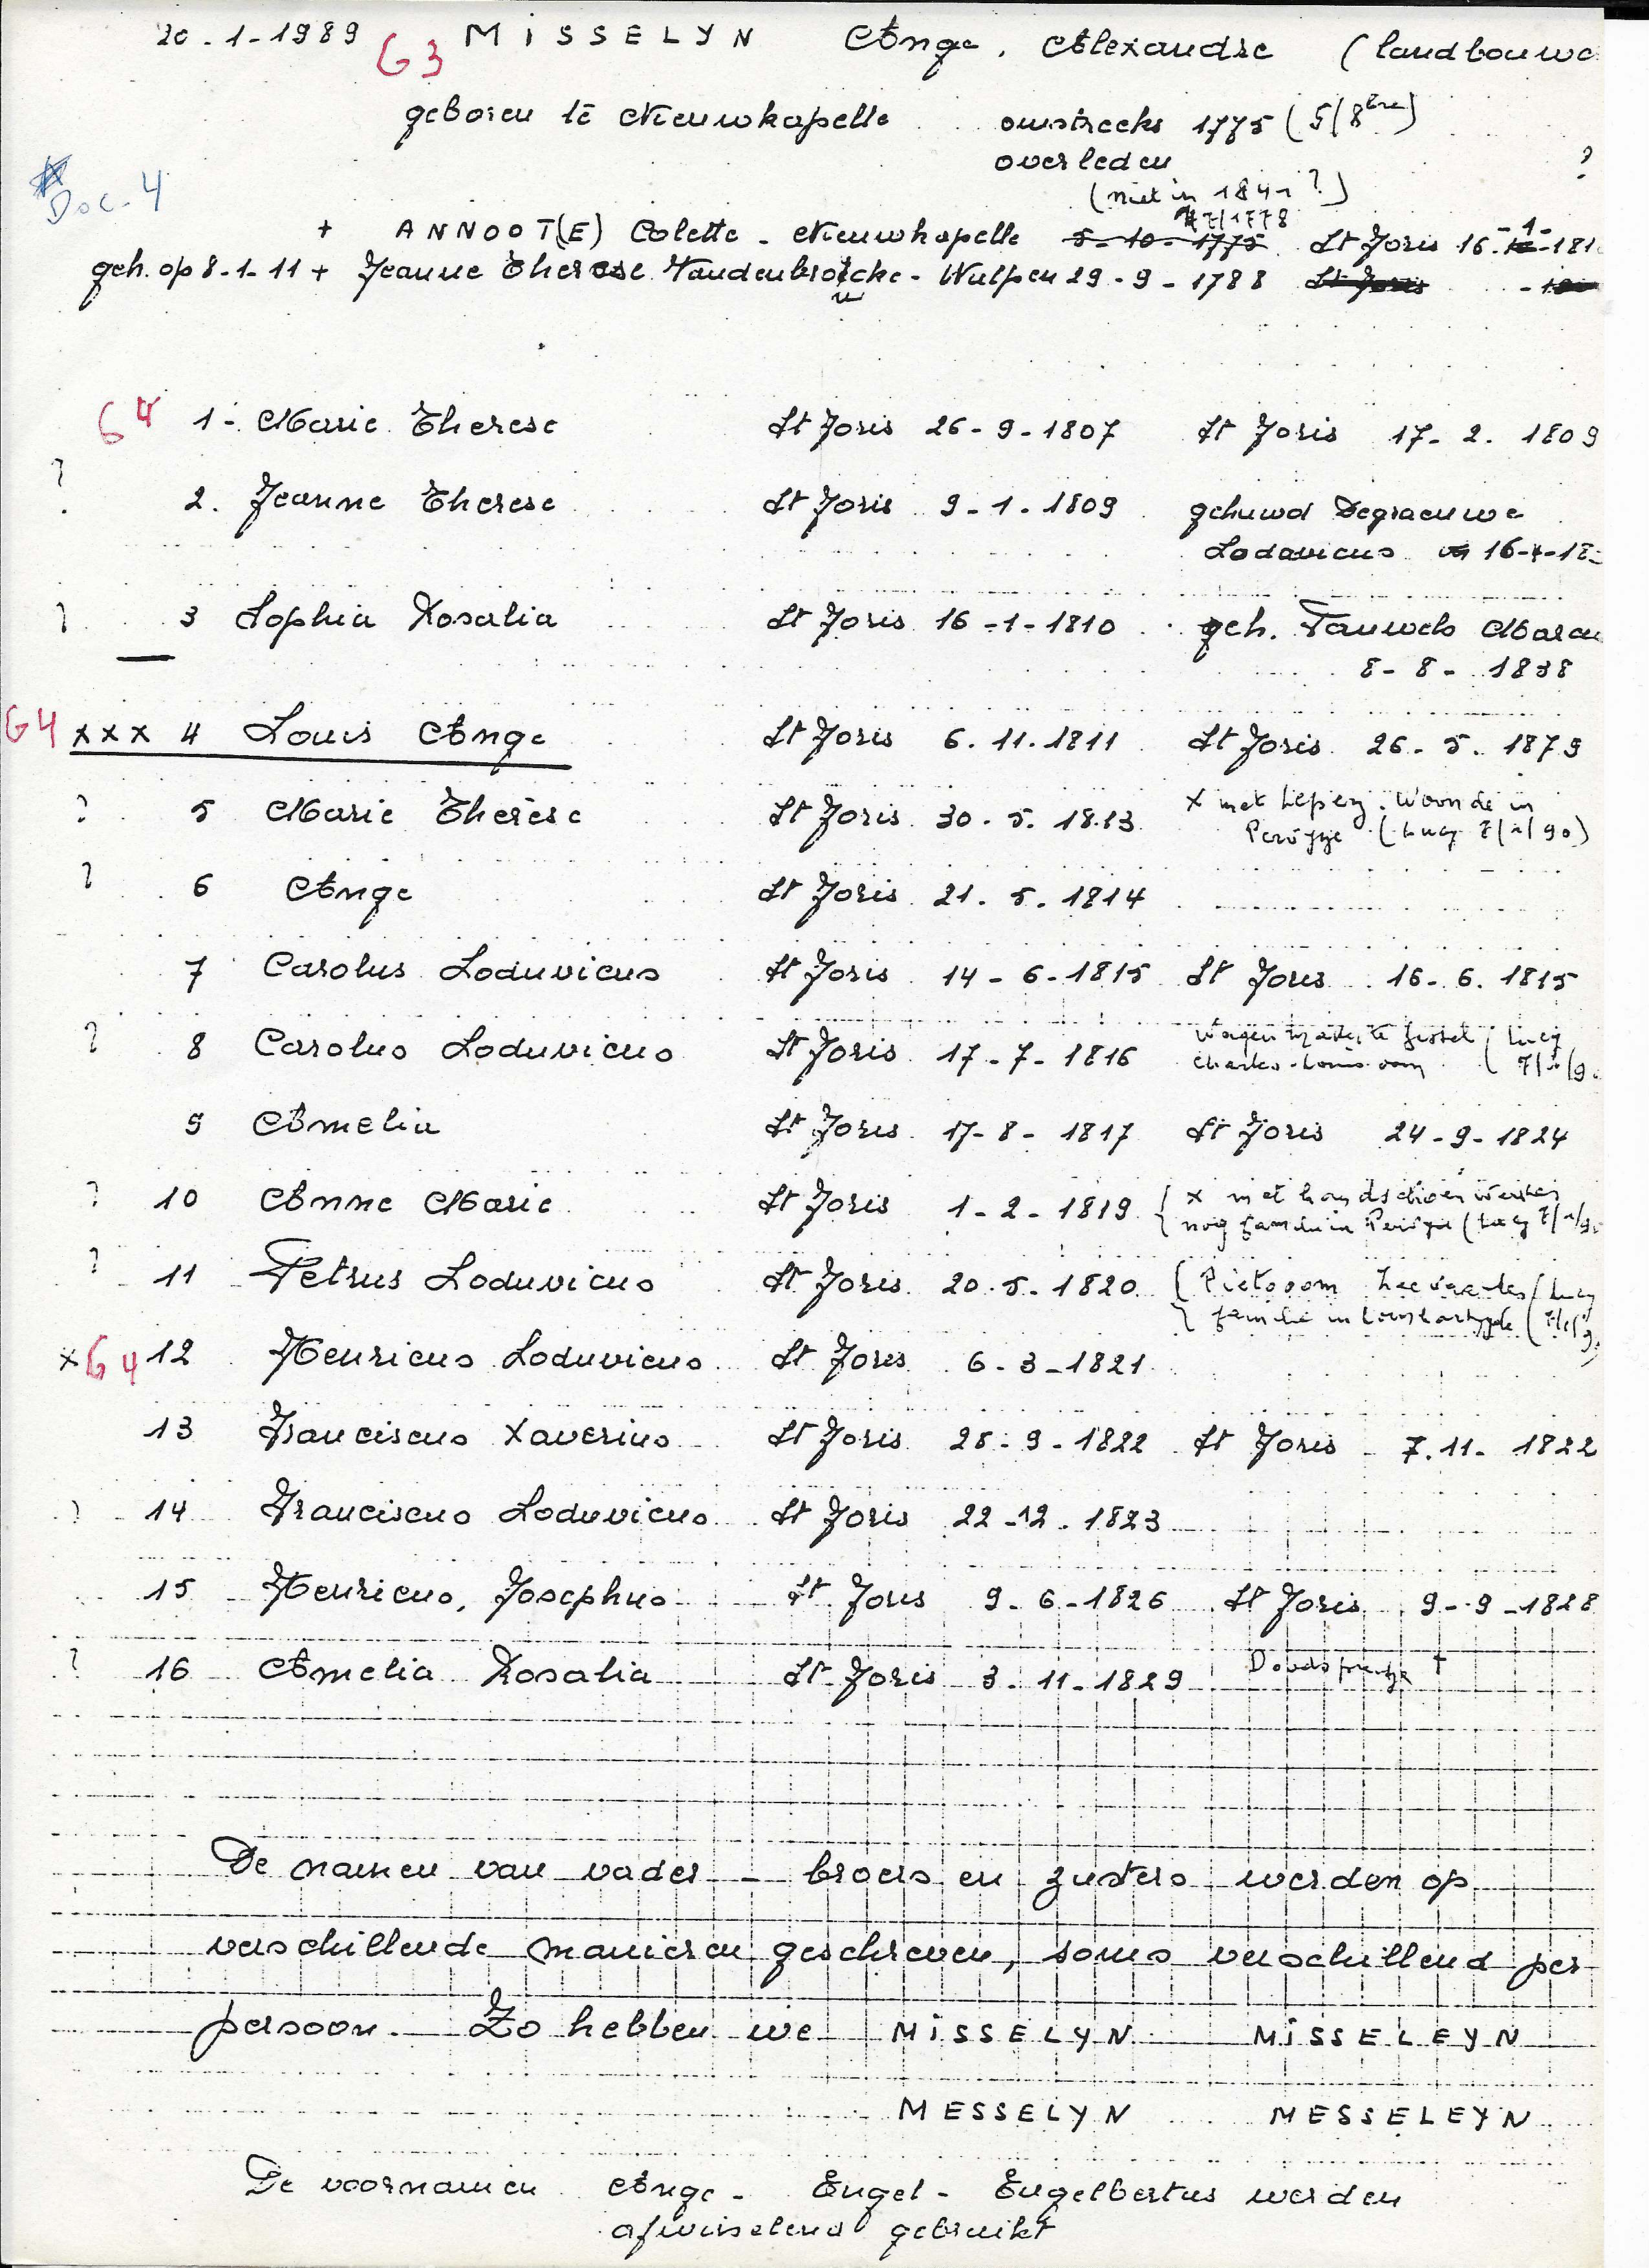 20-1-1989 G3 MISSELYN Ange. Alexandre (landbouwe
geboren te Nieuwkapelle omstreeks 1775 (5/8bre)
overleden ?
Doc-4
(niet in 1841?)
7/1778
+ ANNOOT(E) Colette - Nieuwkapelle 5-10-1775 St Joris 16-1-181
geh. op 8-1-11 + Jeanne Therese Vandenbroucke - Wulpen 29-9-1788 St Joris
G4 1- Marie Therese St Joris 26-9-1807 St Joris 17-2.1809
? 2. Jeanne Therese St Joris 9-1-1809 gehuwd Degraeuwe
Lodavicus 16-4-18
? 3 Sophia Rosalia St Joris 16-1-1810 geh. Pauwels
8-8-1838
G4 xxx 4 Louis Ange St Joris 6.11.1811 St Joris 26-5-1879
? 5 Marie Thérèse St Joris 30.5.1813 x met Lepez. Woonde in
Pervijze (Lucy 7/1/90)
? 6 Ange St Joris 21.5.1814
7 Carolus Loduvicus St Joris 14-6-1815 St Joris 16-6.1815
? 8 Carolus Loduvicus St Joris 17-7-1816 Wagenmaker te Gistel (Lucy
Charles-Louis oom 7/1/9
9 Amelia St Joris 17-8-1817 St Joris 24-9-1824
? 10 Anne Marie St Joris 1-2-1819 { x met handschoen
nog familie in Pervijze (Lucy 7/1/9
? 11 Petrus Loduvicus St Joris 20.5.1820 { Pietooom (Lucy
familie in Lombartzijde 7/1/9
x G4 12 Henricus Loduvicus St Joris 6-3-1821
13 Franciscus Xaverius St Joris 28-9-1822 St Joris 7.11-1822
? 14 Franciscus Loduvicus St Joris 22-12-1823
15 Henricus, Josephus St Joris 9-6-1826 St Joris 9-9-1828
? 16 Amelia Rosalia St Joris 3-11-1829 Doodsprentje †
De namen van vader - broers en zusters werden op
verschillende manieren geschreven, soms verschillend per
persoon. Zo hebben we MISSELYN MISSELEYN
MESSELYN MESSELEYN
De voornamen Ange - Engel - Engelbertus werden
afwisselend gebruikt